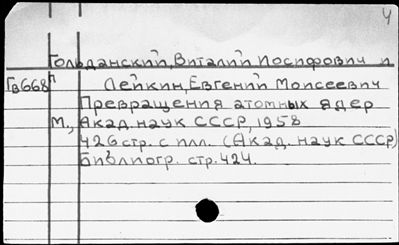 4
Гольданский, Виталий Иосифович и
Гв668п Лейкин, Евгений Моисеевич
Превращения атомных ядер
М., Акад. наук СССР, 1958
426 стр. с илл. (Акад. наук СССР)
Библиогр. стр. 424.